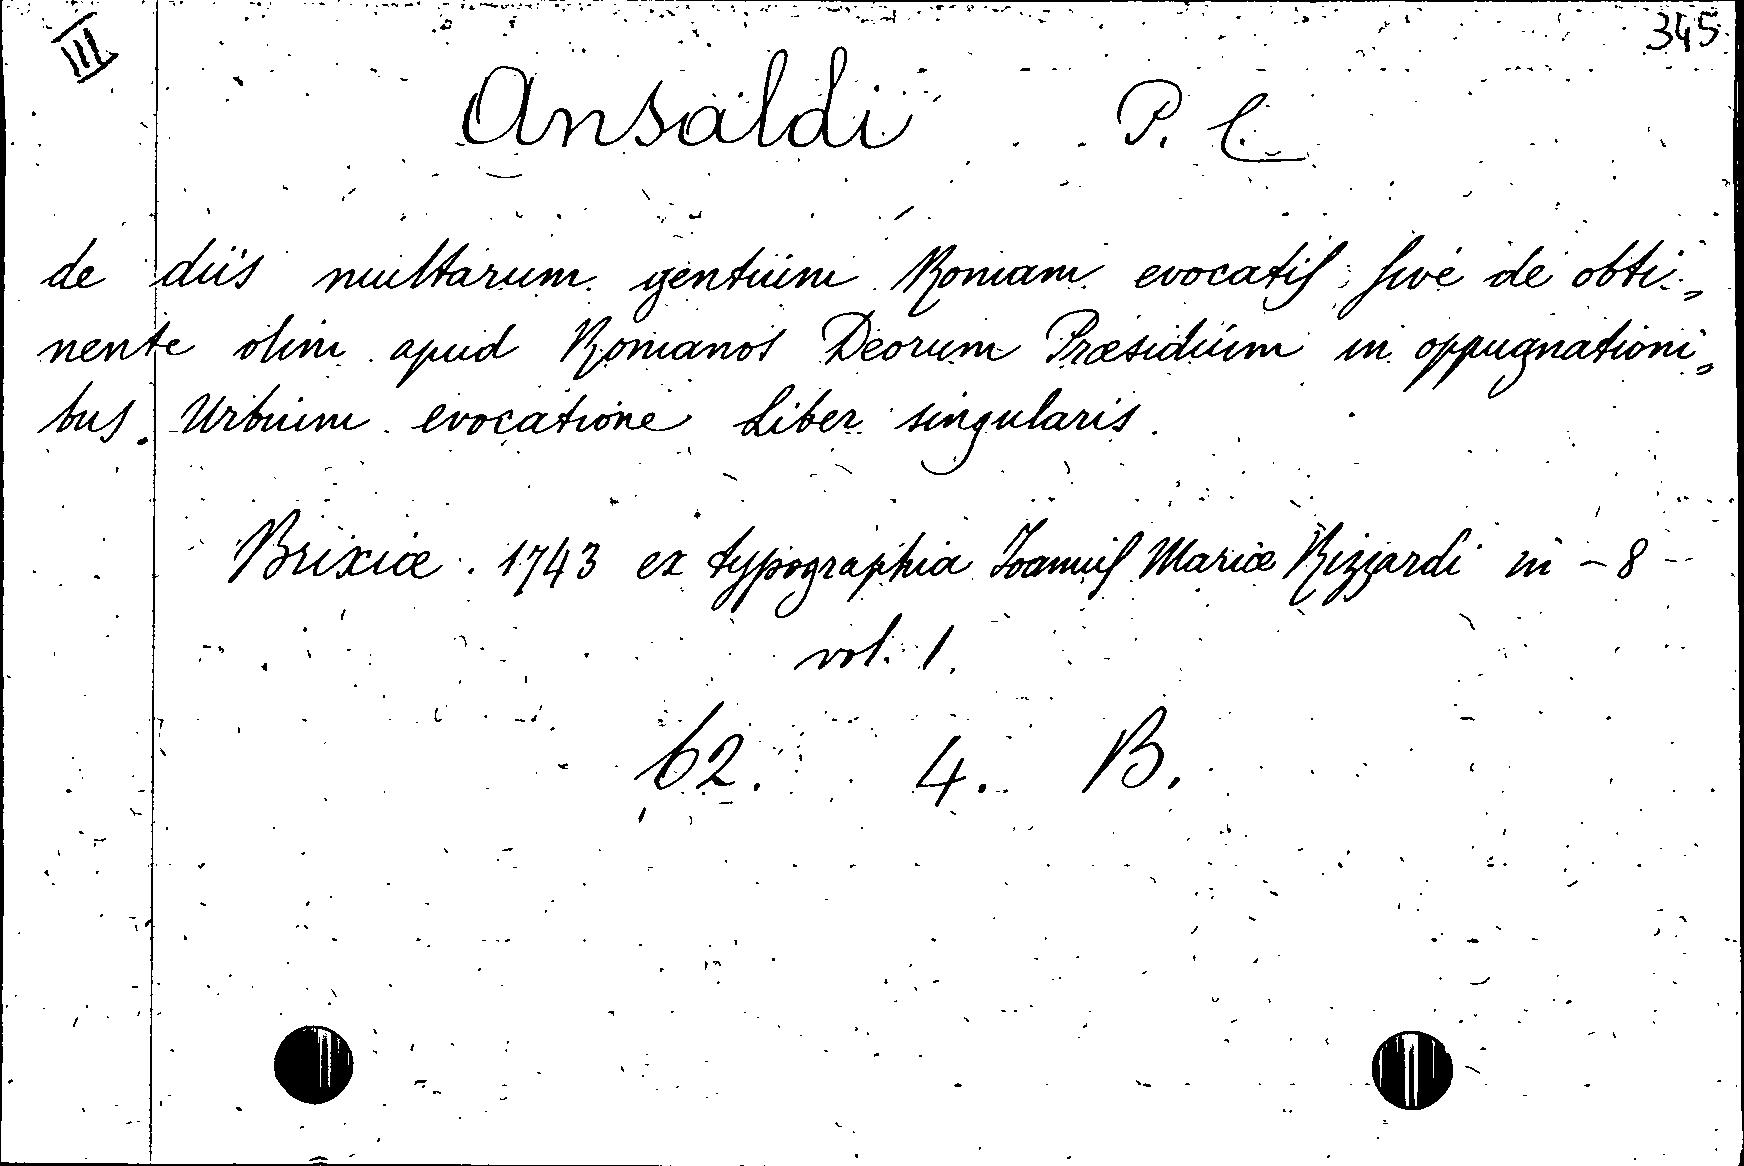 III
345
Ansaldi P. C.
de diis multarum gentium Romam evocatis sive de obti„
nente olim apud Romanos Deorum Præsidium in oppugnationi„
bus. Urbium evocatione Liber singularis.
Brixiæ. 1743 ex typographia Joannis Mariæ Rizzardi in - 8
vol. 1.
62. 4. B.